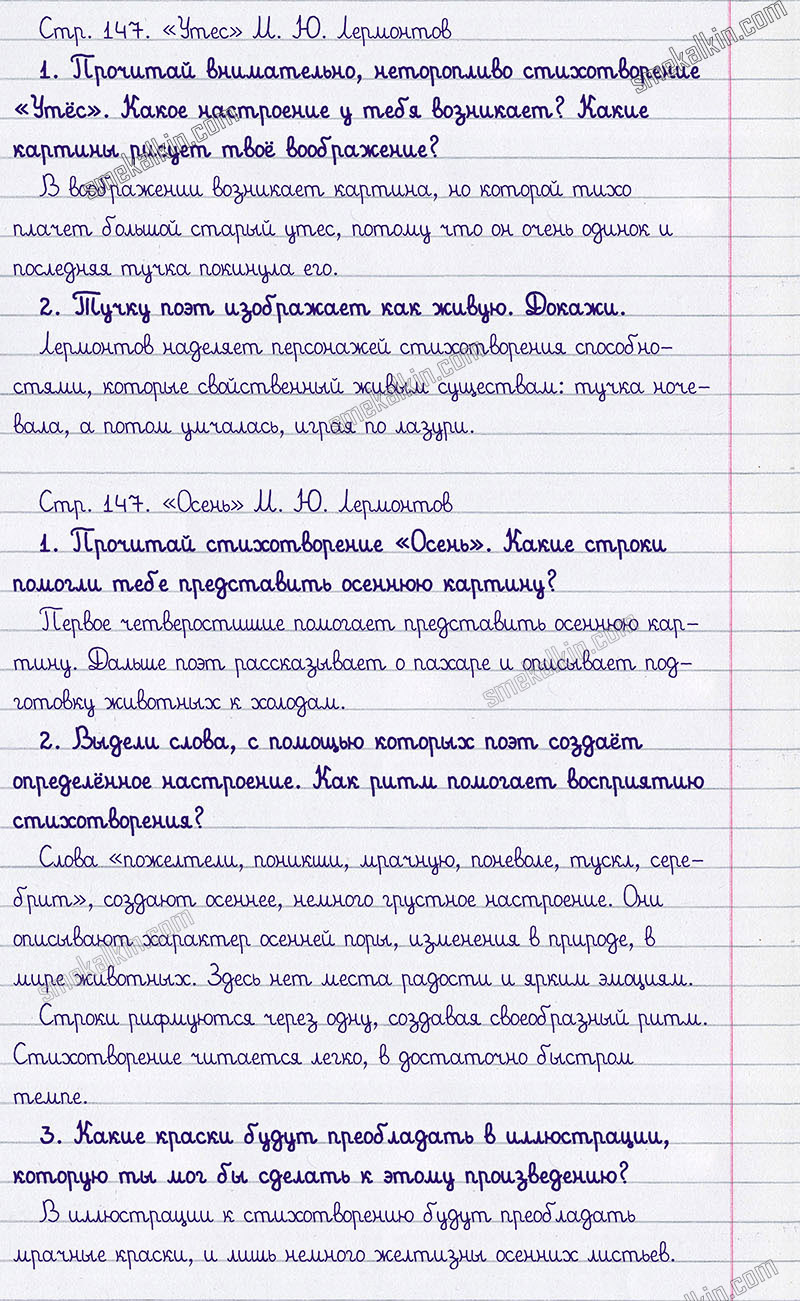 Стр. 147. «Утес» М. Ю. Лермонтов
1. Прочитай внимательно, неторопливо стихотворение
«Утёс». Какое настроение у тебя возникает? Какие
картины рисует твоё воображение?
В воображении возникает картина, но которой тихо
плачет большой старый утес, потому что он очень одинок и
последняя тучка покинула его.
2. Тучку поэт изображает как живую. Докажи.
Лермонтов наделяет персонажей стихотворения способно-
стями, которые свойственный живым существам: тучка ноче-
вала, а потом умчалась, играя по лазури.
Стр. 147. «Осень» М. Ю. Лермонтов
1. Прочитай стихотворение «Осень». Какие строки
помогли тебе представить осеннюю картину?
Первое четверостишие помогает представить осеннюю кар-
тину. Дальше поэт рассказывает о пахаре и описывает под-
готовку животных к холодам.
2. Выдели слова, с помощью которых поэт создаёт
определённое настроение. Как ритм помогает восприятию
стихотворения?
Слова «пожелтели, поникши, мрачную, поневоле, тускл, сере-
брит», создают осеннее, немного грустное настроение. Они
описывают характер осенней поры, изменения в природе, в
мире животных. Здесь нет места радости и ярким эмоциям.
Строки рифмуются через одну, создавая своеобразный ритм.
Стихотворение читается легко, в достаточно быстром
темпе.
3. Какие краски будут преобладать в иллюстрации,
которую ты мог бы сделать к этому произведению?
В иллюстрации к стихотворению будут преобладать
мрачные краски, и лишь немного желтизны осенних листьев.
smekalkin.com
smekalkin.com
smekalkin.com
smekalkin.com
smekalkin.com
smekalkin.com